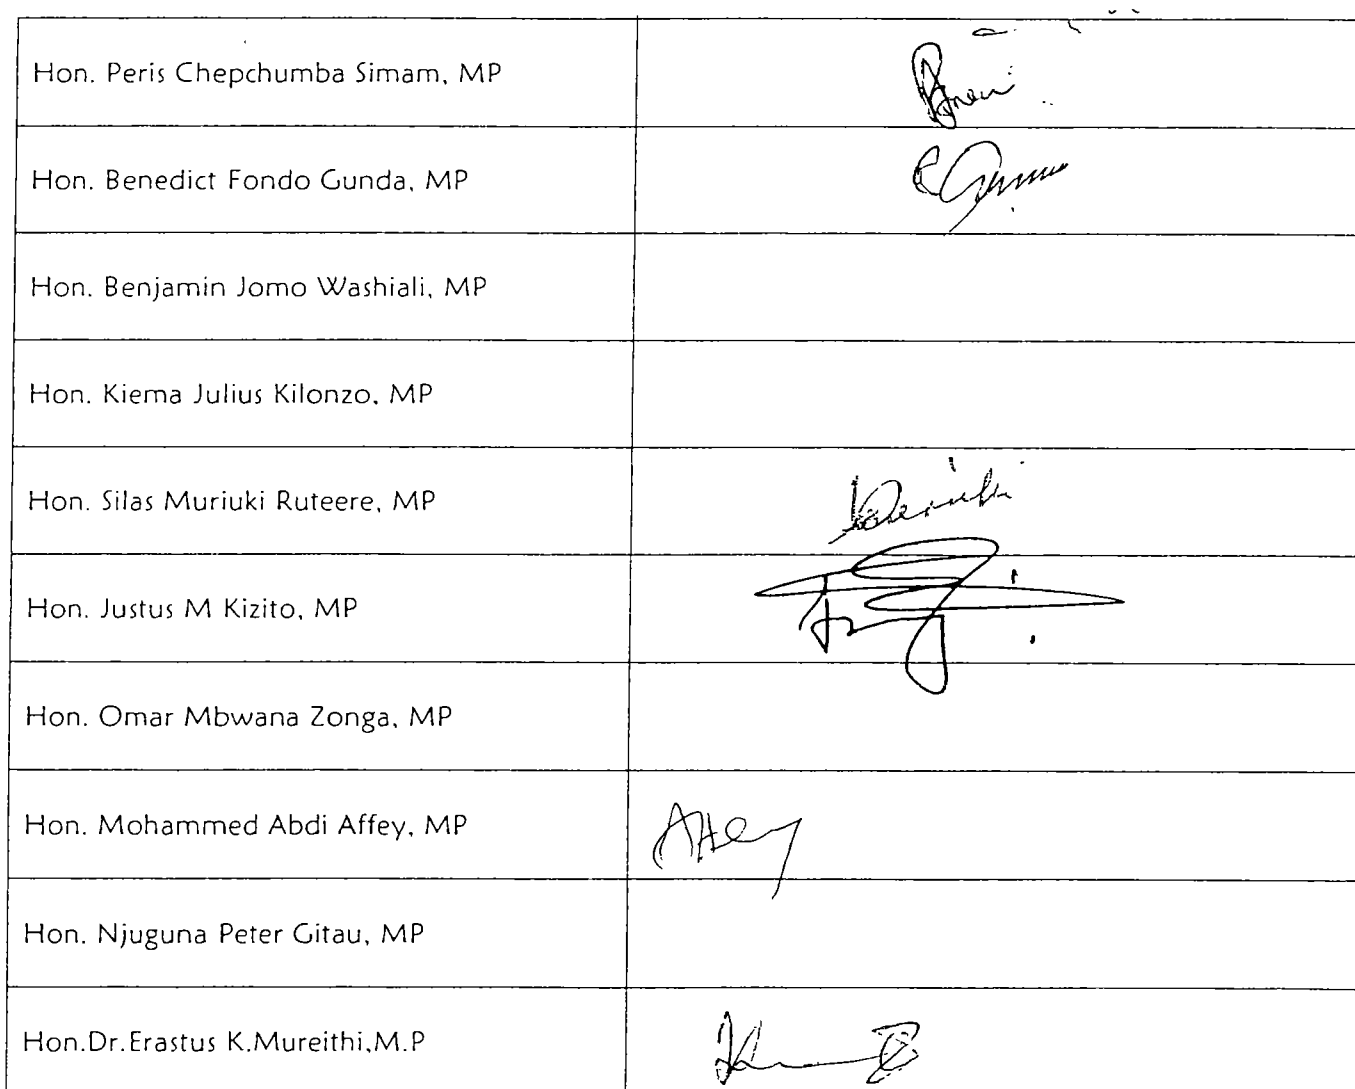 Hon. Peris Chepchumba Simam, MP
Hon. Benedict Fondo Gunda, MP
Hon. Benjamin Jomo Washiali, MP
Hon. Kiema Julius Kilonzo, MP
Hon. Silas Muriuki Ruteere, MP
Hon. Justus M Kizito, MP
Hon. Omar Mbwana Zonga, MP
Hon. Mohammed Abdi Affey, MP
Affey
Hon. Njuguna Peter Gitau, MP
Hon.Dr.Erastus K.Mureithi,M.P